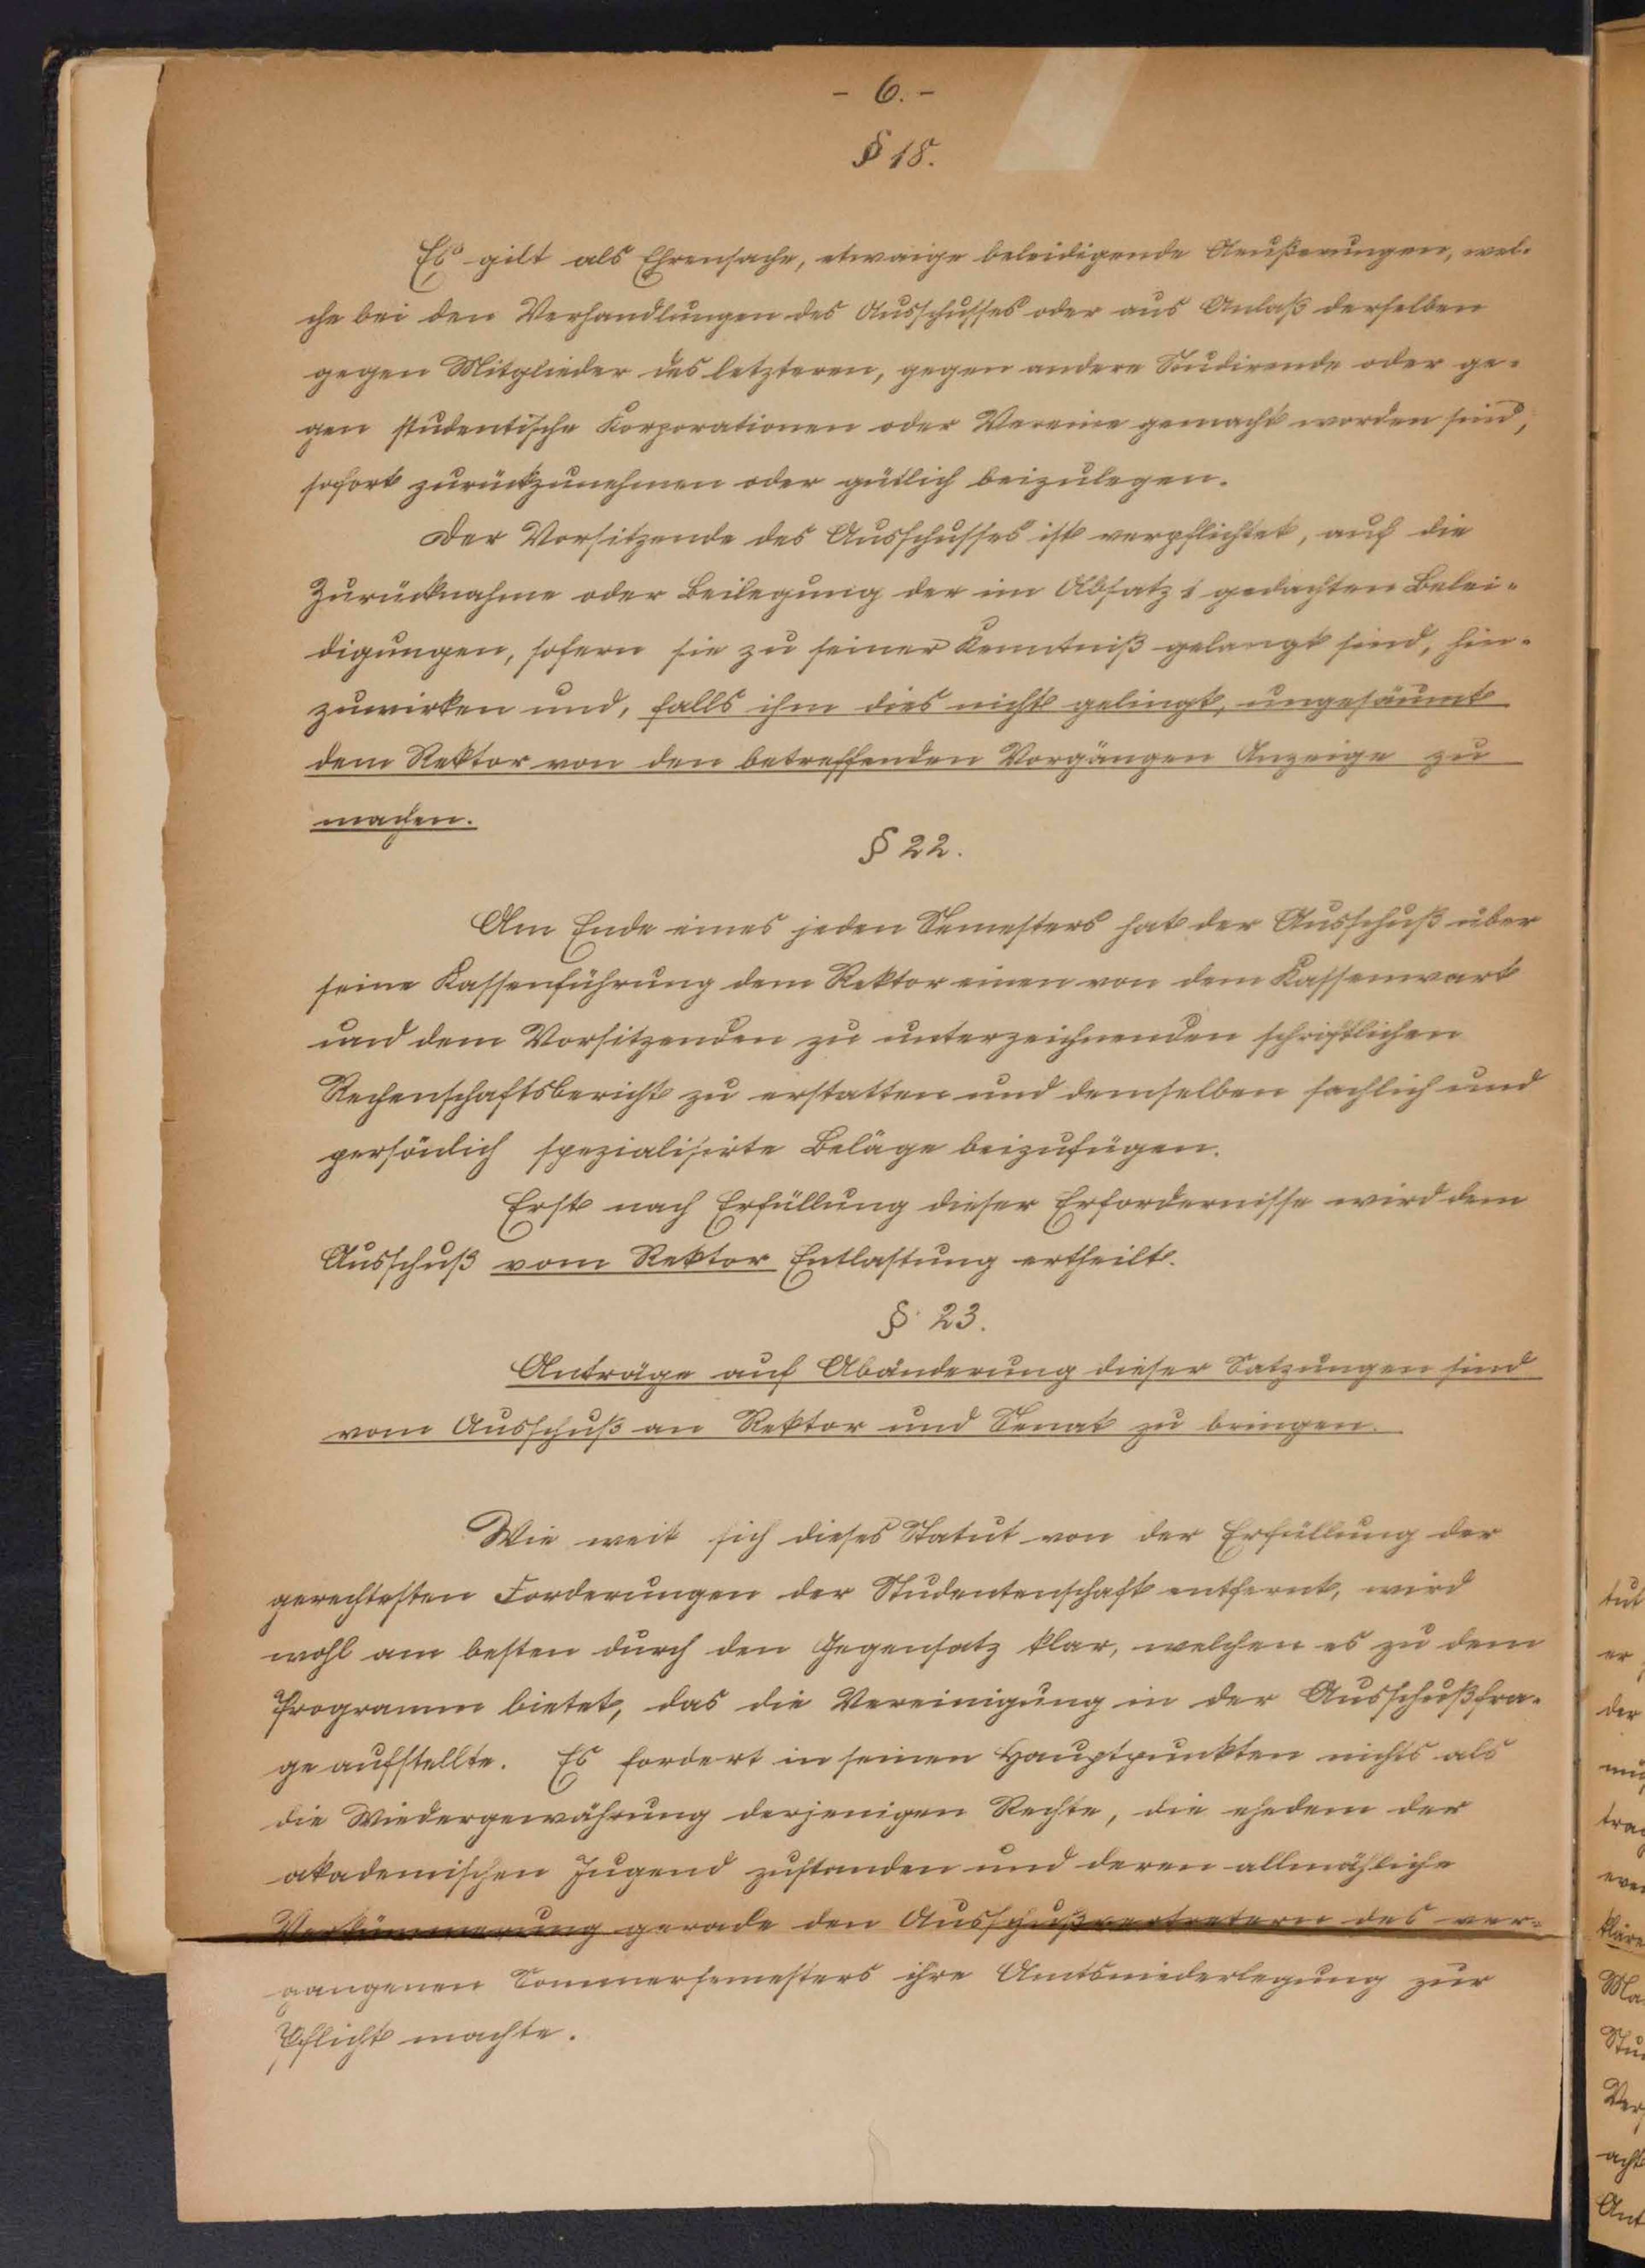 - 6. -
§ 18.
Es gilt als Ehrensache, etwaige beleidigende Aeußerungen, wel-
che bei den Verhandlungen des Ausschusses oder aus Anlaß derselben
gegen Mitglieder des letzteren, gegen andere Studirende oder ge-
gen studentische Korporationen oder Vereine gemacht worden sind,
sofort zurückzunehmen oder gütlich beizulegen.
Der Vorsitzende des Ausschusses ist verpflichtet, auf die
Zurücknahme oder Beilegung der im Absatz 1 gedachten Belei-
digungen, sofern sie zu seiner Kenntniß gelangt sind, hin-
zuwirken und, falls ihm dies nicht gelingt, ungesäumt
dem Rektor von den betreffenden Vorgängen Anzeige zu
machen.
§ 22.
Am Ende eines jeden Semesters hat der Ausschuß über
seine Kassenführung dem Rektor einen von dem Kassenwart
und dem Vorsitzenden zu unterzeichnenden schriftlichen
Rechenschaftsbericht zu erstatten und demselben sachlich und
persönlich spezialisirte Beläge beizufügen.
Erst nach Erfüllung dieser Erfordernisse wird dem
Ausschuß vom Rektor Entlastung ertheilt.
§ 23.
Anträge auf Abänderung dieser Satzungen sind
vom Ausschuß an Rektor und Senat zu bringen.
Wie weit sich dieses Statut von der Erfüllung der
gerechtesten Forderungen der Studentenschaft entfernt, wird
wohl am besten durch den Gegensatz klar, welchen es zu dem
Programm bietet, das die Vereinigung in der Ausschußfra-
ge aufstellte. Es fordert in seinen Hauptpunkten nichts als
die Wiedergewährung derjenigen Rechte, die ehedem der
akademischen Jugend zustanden und deren allmähliche
Verkümmerung gerade den Ausschußvertretern des ver-
gangenen Sommersemesters ihre Amtsniederlegung zur
Pflicht machte.